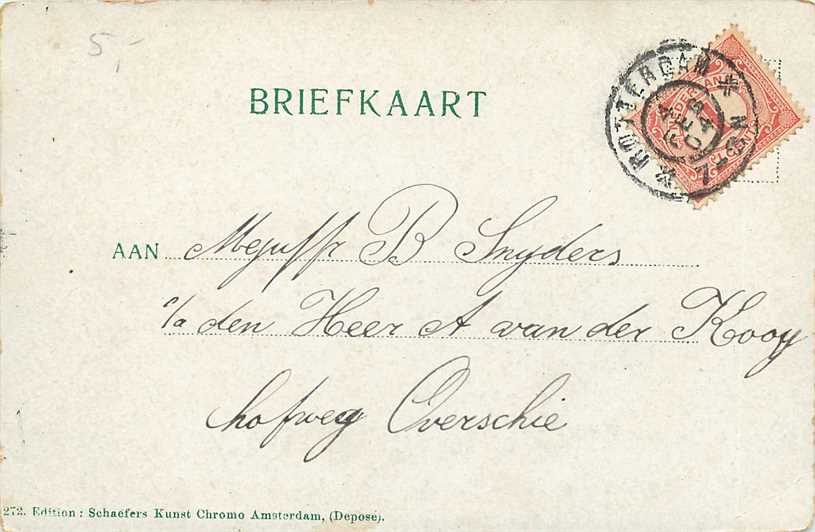 5,-
BRIEFKAART
ROTTERDAM
4 FEB 04
7-12N
AAN Mejuffr B Snyders
c/a den Heer A van der Kooy
hofweg Overschie
272. Edition : Schaefers Kunst Chromo Amsterdam, (Deposé).